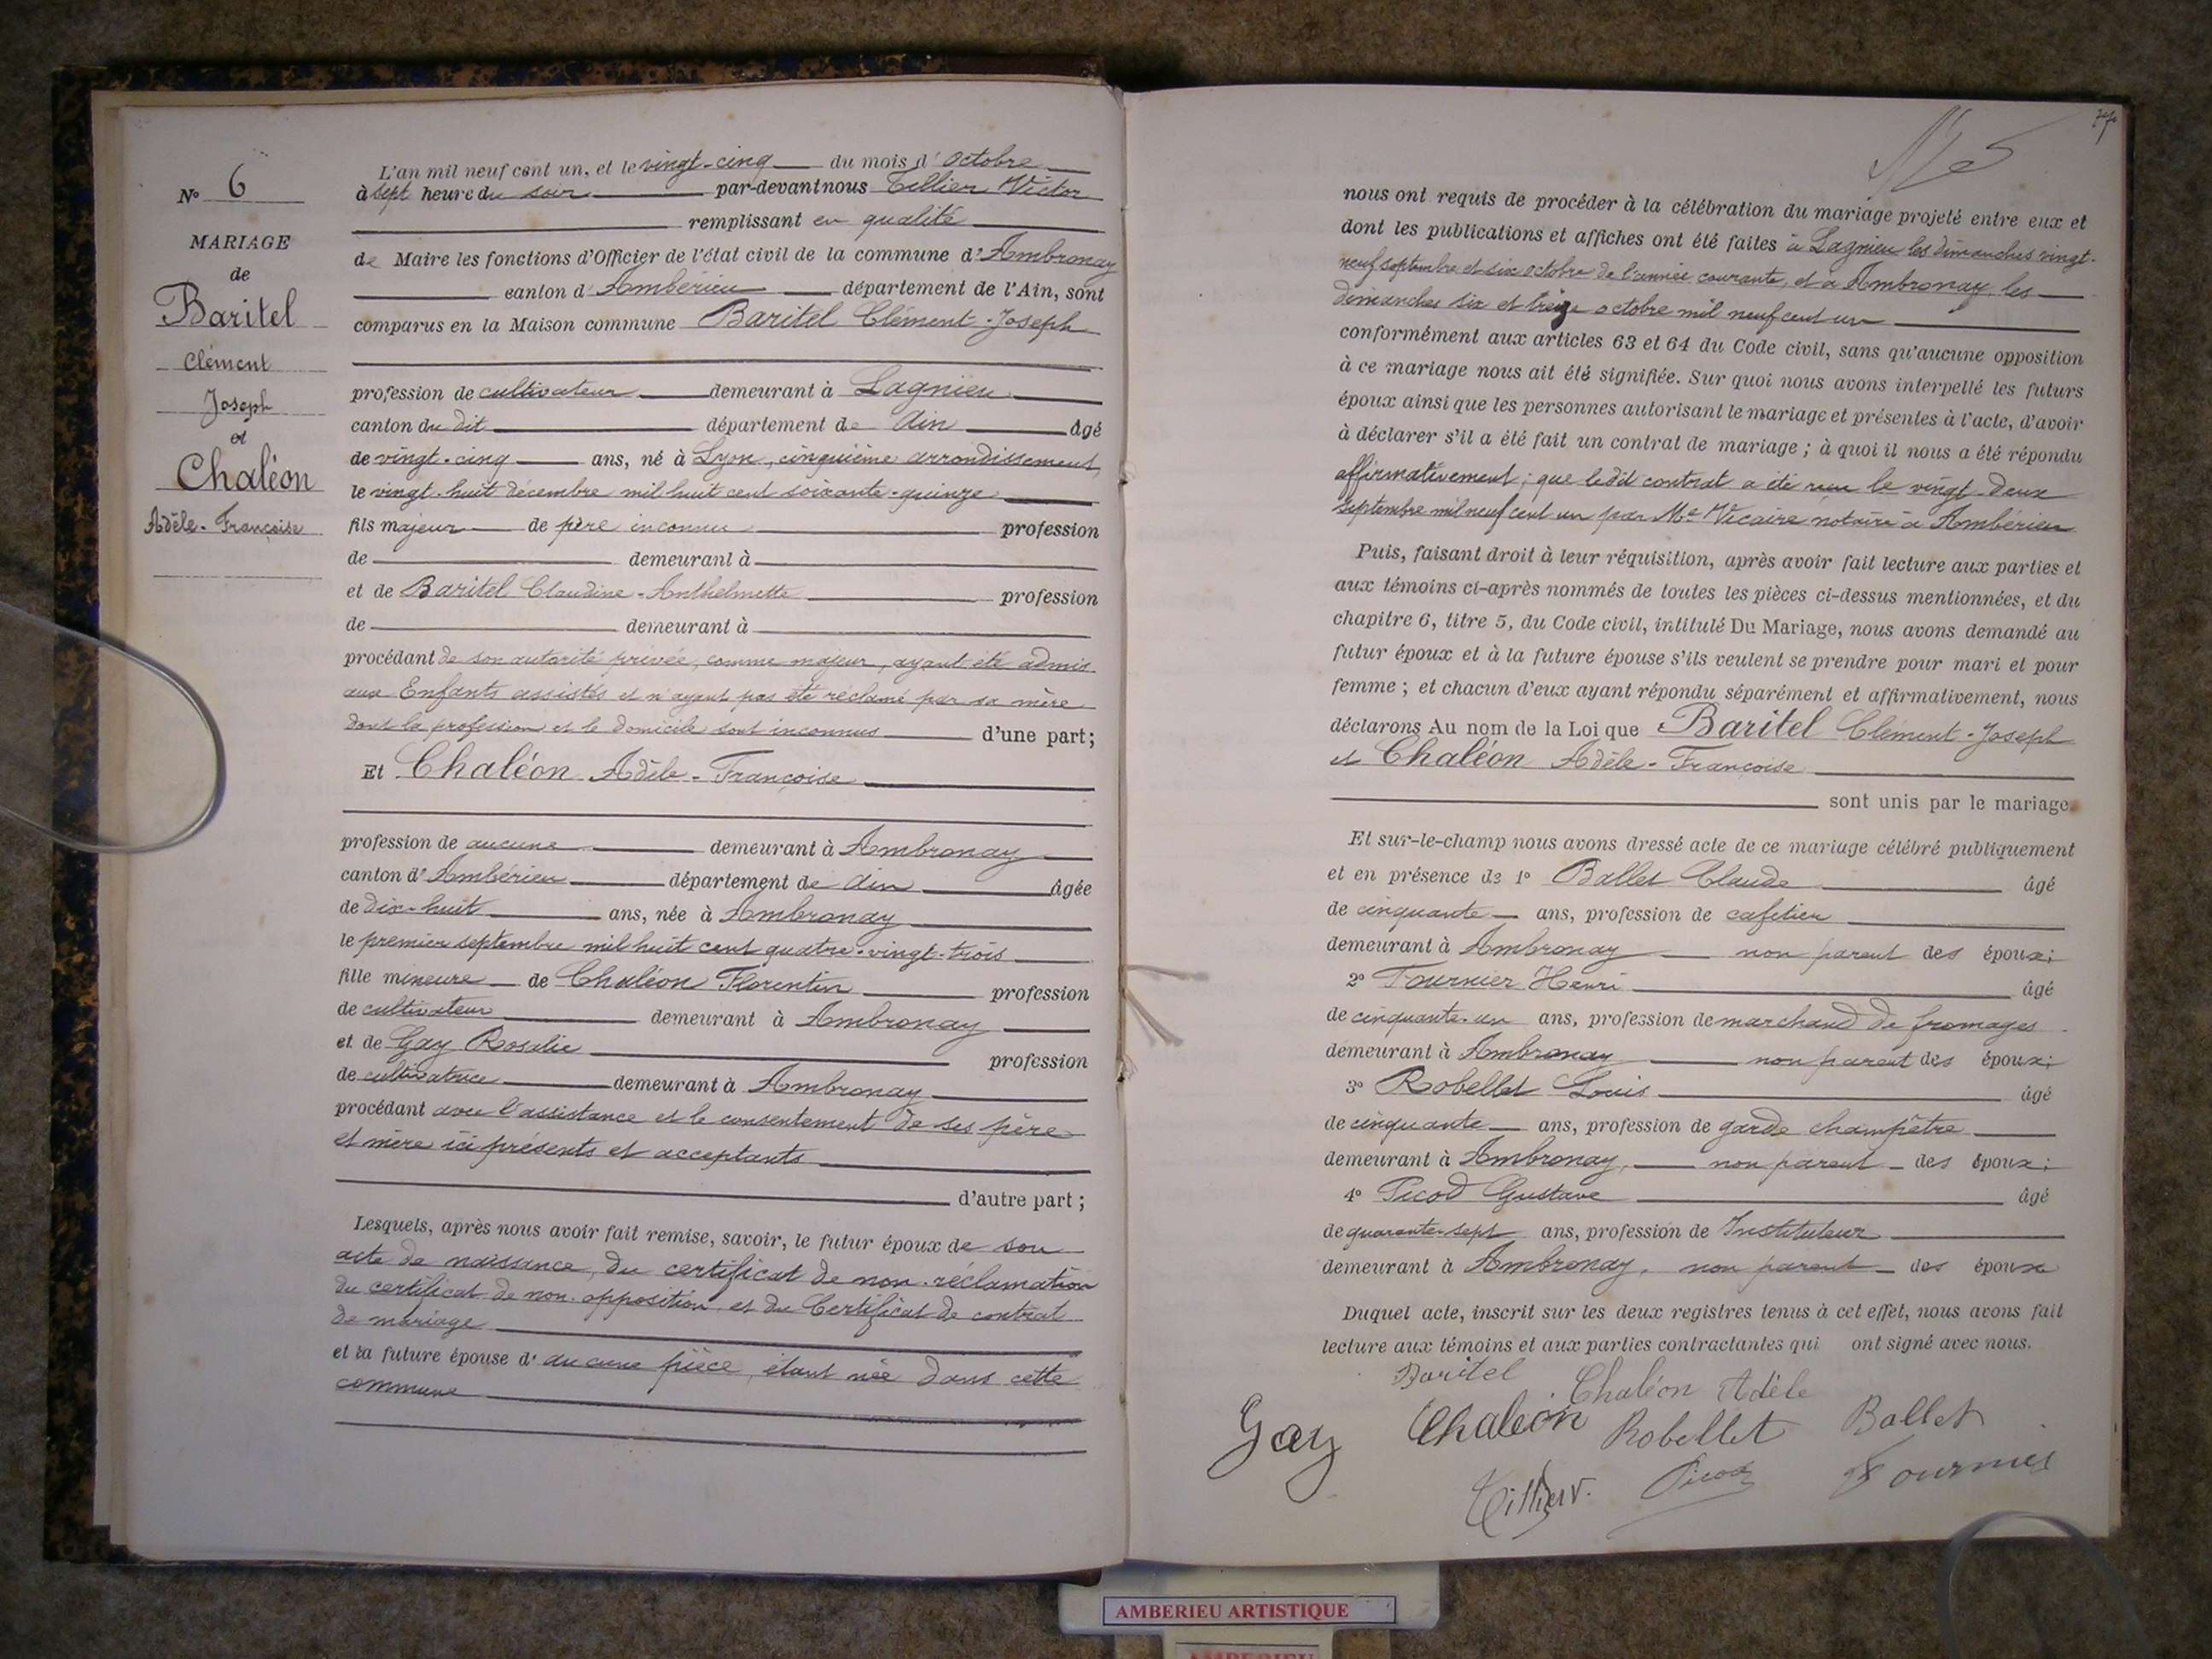 N° 6
MARIAGE
de
Baritel
Clément
Joseph
et
Chaléon
Adèle-Françoise
L'an mil neuf cent un, et le vingt-cinq du mois d'octobre
à sept heure du soir par-devant nous Tillier Victor
remplissant en qualité
de Maire les fonctions d'Officier de l'état civil de la commune d'Ambronay
canton d'Ambérieu département de l'Ain, sont
comparus en la Maison commune Baritel Clément-Joseph
profession de cultivateur demeurant à Lagnieu
canton du dit département de Ain âgé
de vingt-cinq ans, né à Lyon, cinquième arrondissement,
le vingt-huit décembre mil huit cent soixante-quinze
fils majeur de père inconnu profession
de demeurant à
et de Baritel Claudine-Anthelmette profession
de demeurant à
procédant de son autorité privée, comme majeur, ayant été admis
aux Enfants assistés et n'ayant pas été réclamé par sa mère
dont la profession et le domicile sont inconnus d'une part;
Et Chaléon Adèle-Françoise
profession de aucune demeurant à Ambronay
canton d'Ambérieu département de Ain âgée
de dix-huit ans, née à Ambronay
le premier septembre mil huit cent quatre-vingt-trois
fille mineure de Chaléon Florentin profession
de cultivateur demeurant à Ambronay
et de Gay Rosalie profession
de cultivatrice demeurant à Ambronay
procédant avec l'assistance et le consentement de ses père
et mère ici présents et acceptants
d'autre part;
Lesquels, après nous avoir fait remise, savoir, le futur époux de son
acte de naissance, du certificat de non-réclamation
du certificat de non-opposition, et du Certificat de contrat
de mariage
et la future épouse d'aucune pièce, étant née dans cette
commune
nous ont requis de procéder à la célébration du mariage projeté entre eux et
dont les publications et affiches ont été faites à Lagnieu les dimanches vingt-
neuf septembre et six octobre de l'année courante, et à Ambronay les
dimanches six et treize octobre mil neuf cent un
conformément aux articles 63 et 64 du Code civil, sans qu'aucune opposition
à ce mariage nous ait été signifiée. Sur quoi nous avons interpellé les futurs
époux ainsi que les personnes autorisant le mariage et présentes à l'acte, d'avoir
à déclarer s'il a été fait un contrat de mariage; à quoi il nous a été répondu
affirmativement; que ledit contrat a été reçu le vingt-deux
septembre mil neuf cent un par Me Vicaire notaire à Ambérieu
Puis, faisant droit à leur réquisition, après avoir fait lecture aux parties et
aux témoins ci-après nommés de toutes les pièces ci-dessus mentionnées, et du
chapitre 6, titre 5, du Code civil, intitulé Du Mariage, nous avons demandé au
futur époux et à la future épouse s'ils veulent se prendre pour mari et pour
femme; et chacun d'eux ayant répondu séparément et affirmativement, nous
déclarons Au nom de la Loi que Baritel Clément-Joseph
et Chaléon Adèle-Françoise
sont unis par le mariage.
Et sur-le-champ nous avons dressé acte de ce mariage célébré publiquement
et en présence de 1° Ballet Claude âgé
de cinquante ans, profession de cafetier
demeurant à Ambronay non parent des époux;
2° Fournier Henri âgé
de cinquante-un ans, profession de marchand de fromages
demeurant à Ambronay non parent des époux;
3° Robellet Louis âgé
de cinquante ans, profession de garde champêtre
demeurant à Ambronay, non parent des époux;
4° Picod Gustave âgé
de quarante-sept ans, profession de Instituteur
demeurant à Ambronay, non parent des époux
Duquel acte, inscrit sur les deux registres tenus à cet effet, nous avons fait
lecture aux témoins et aux parties contractantes qui ont signé avec nous.
Baritel Chaléon Adèle
Gay Chaléon Robellet Ballet
Tillier V. Picod Fournier
AMBERIEU ARTISTIQUE
AMBERIEU